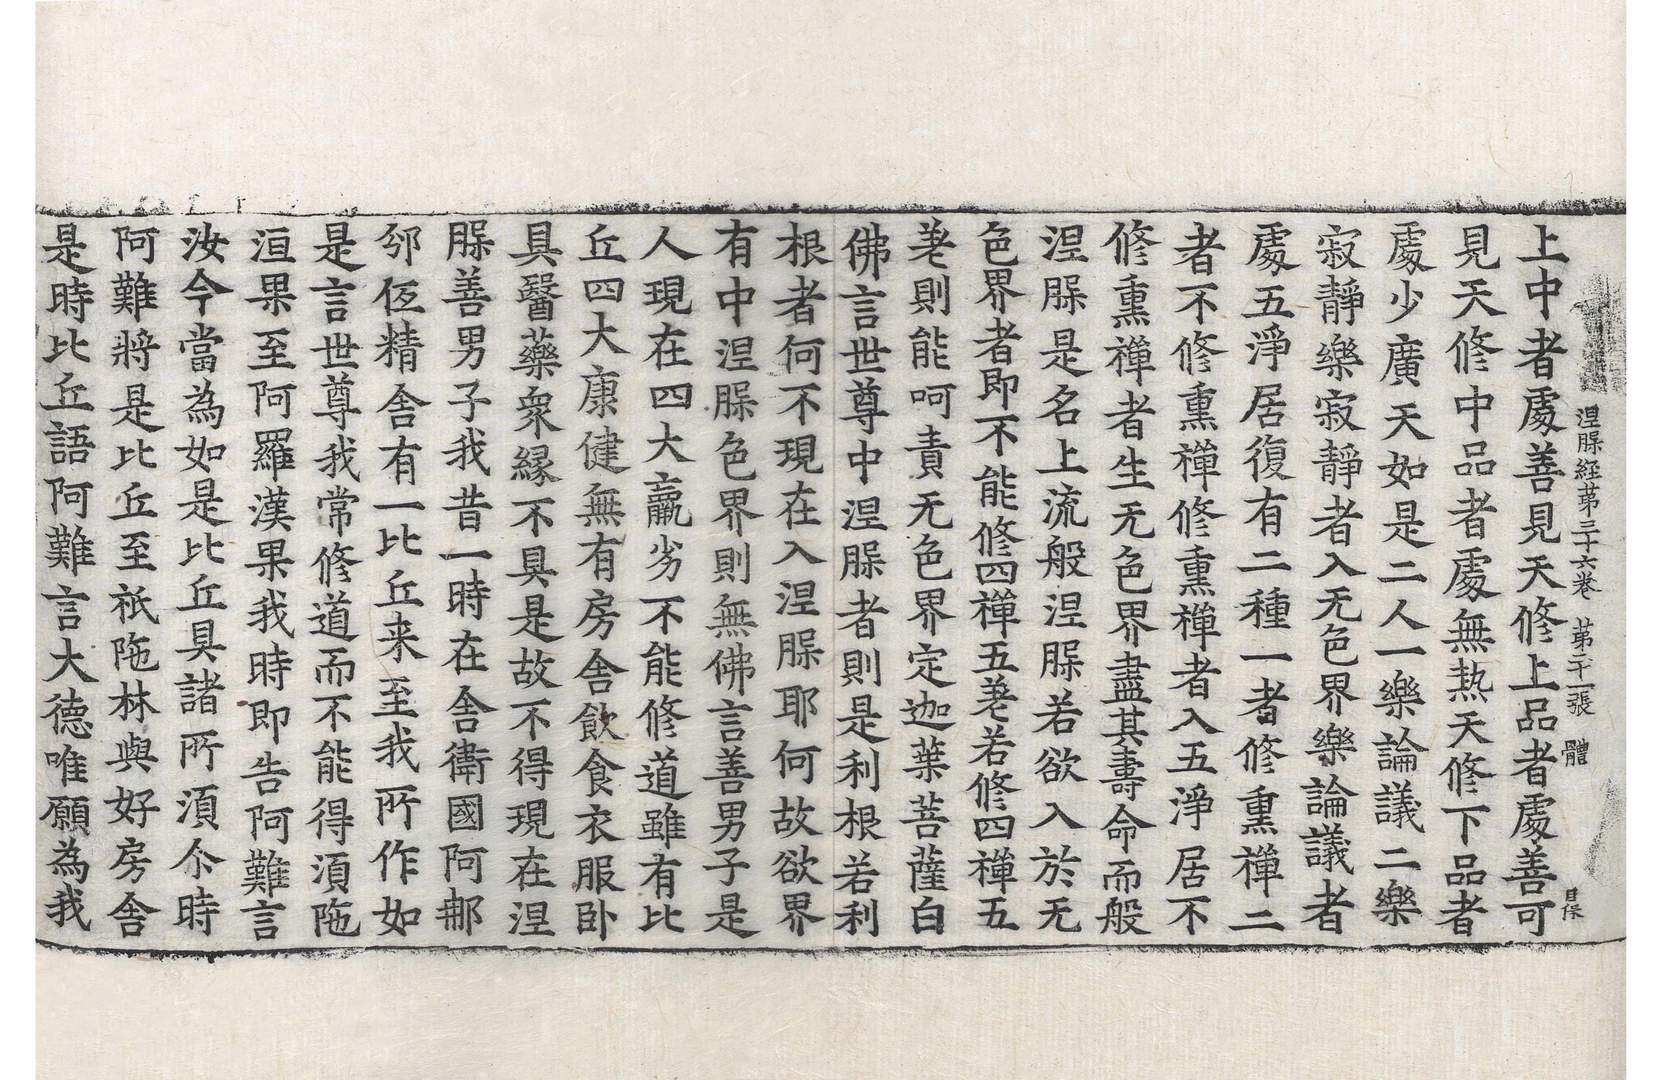 涅腺経苐三十六巻 苐二十一張 體
上中者處善見天修上品者處善可
見天修中品者處無熱天修下品者
處少廣天如是二人一樂論議二樂
寂靜樂寂靜者入无色界樂論議者
處五淨居復有二種一者修熏禪二
者不修熏禪修熏禪者入五淨居不
修熏禪者生无色界盡其壽命而般
涅腺是名上流般涅腺若欲入於无
色界者即不能修四禪五差若修四禪五
差則能呵責无色界定迦葉菩薩白
佛言世尊中涅腺者則是利根若利
根者何不現在入涅腺耶何故欲界
有中涅腺色界則無佛言善男子是
人現在四大羸劣不能修道雖有比
丘四大康健無有房舍飲食衣服卧
具醫藥衆緣不具是故不得現在涅
腺善男子我昔一時在舍衛國阿那
邠坻精舍有一比丘来至我所作如
是言世尊我常修道而不能得湏陁
洹果至阿羅漢果我時即告阿難言
汝今當為如是比丘具諸所湏尒時
阿難將是比丘至祇陁林與好房舍
是時比丘語阿難言大德唯願為我